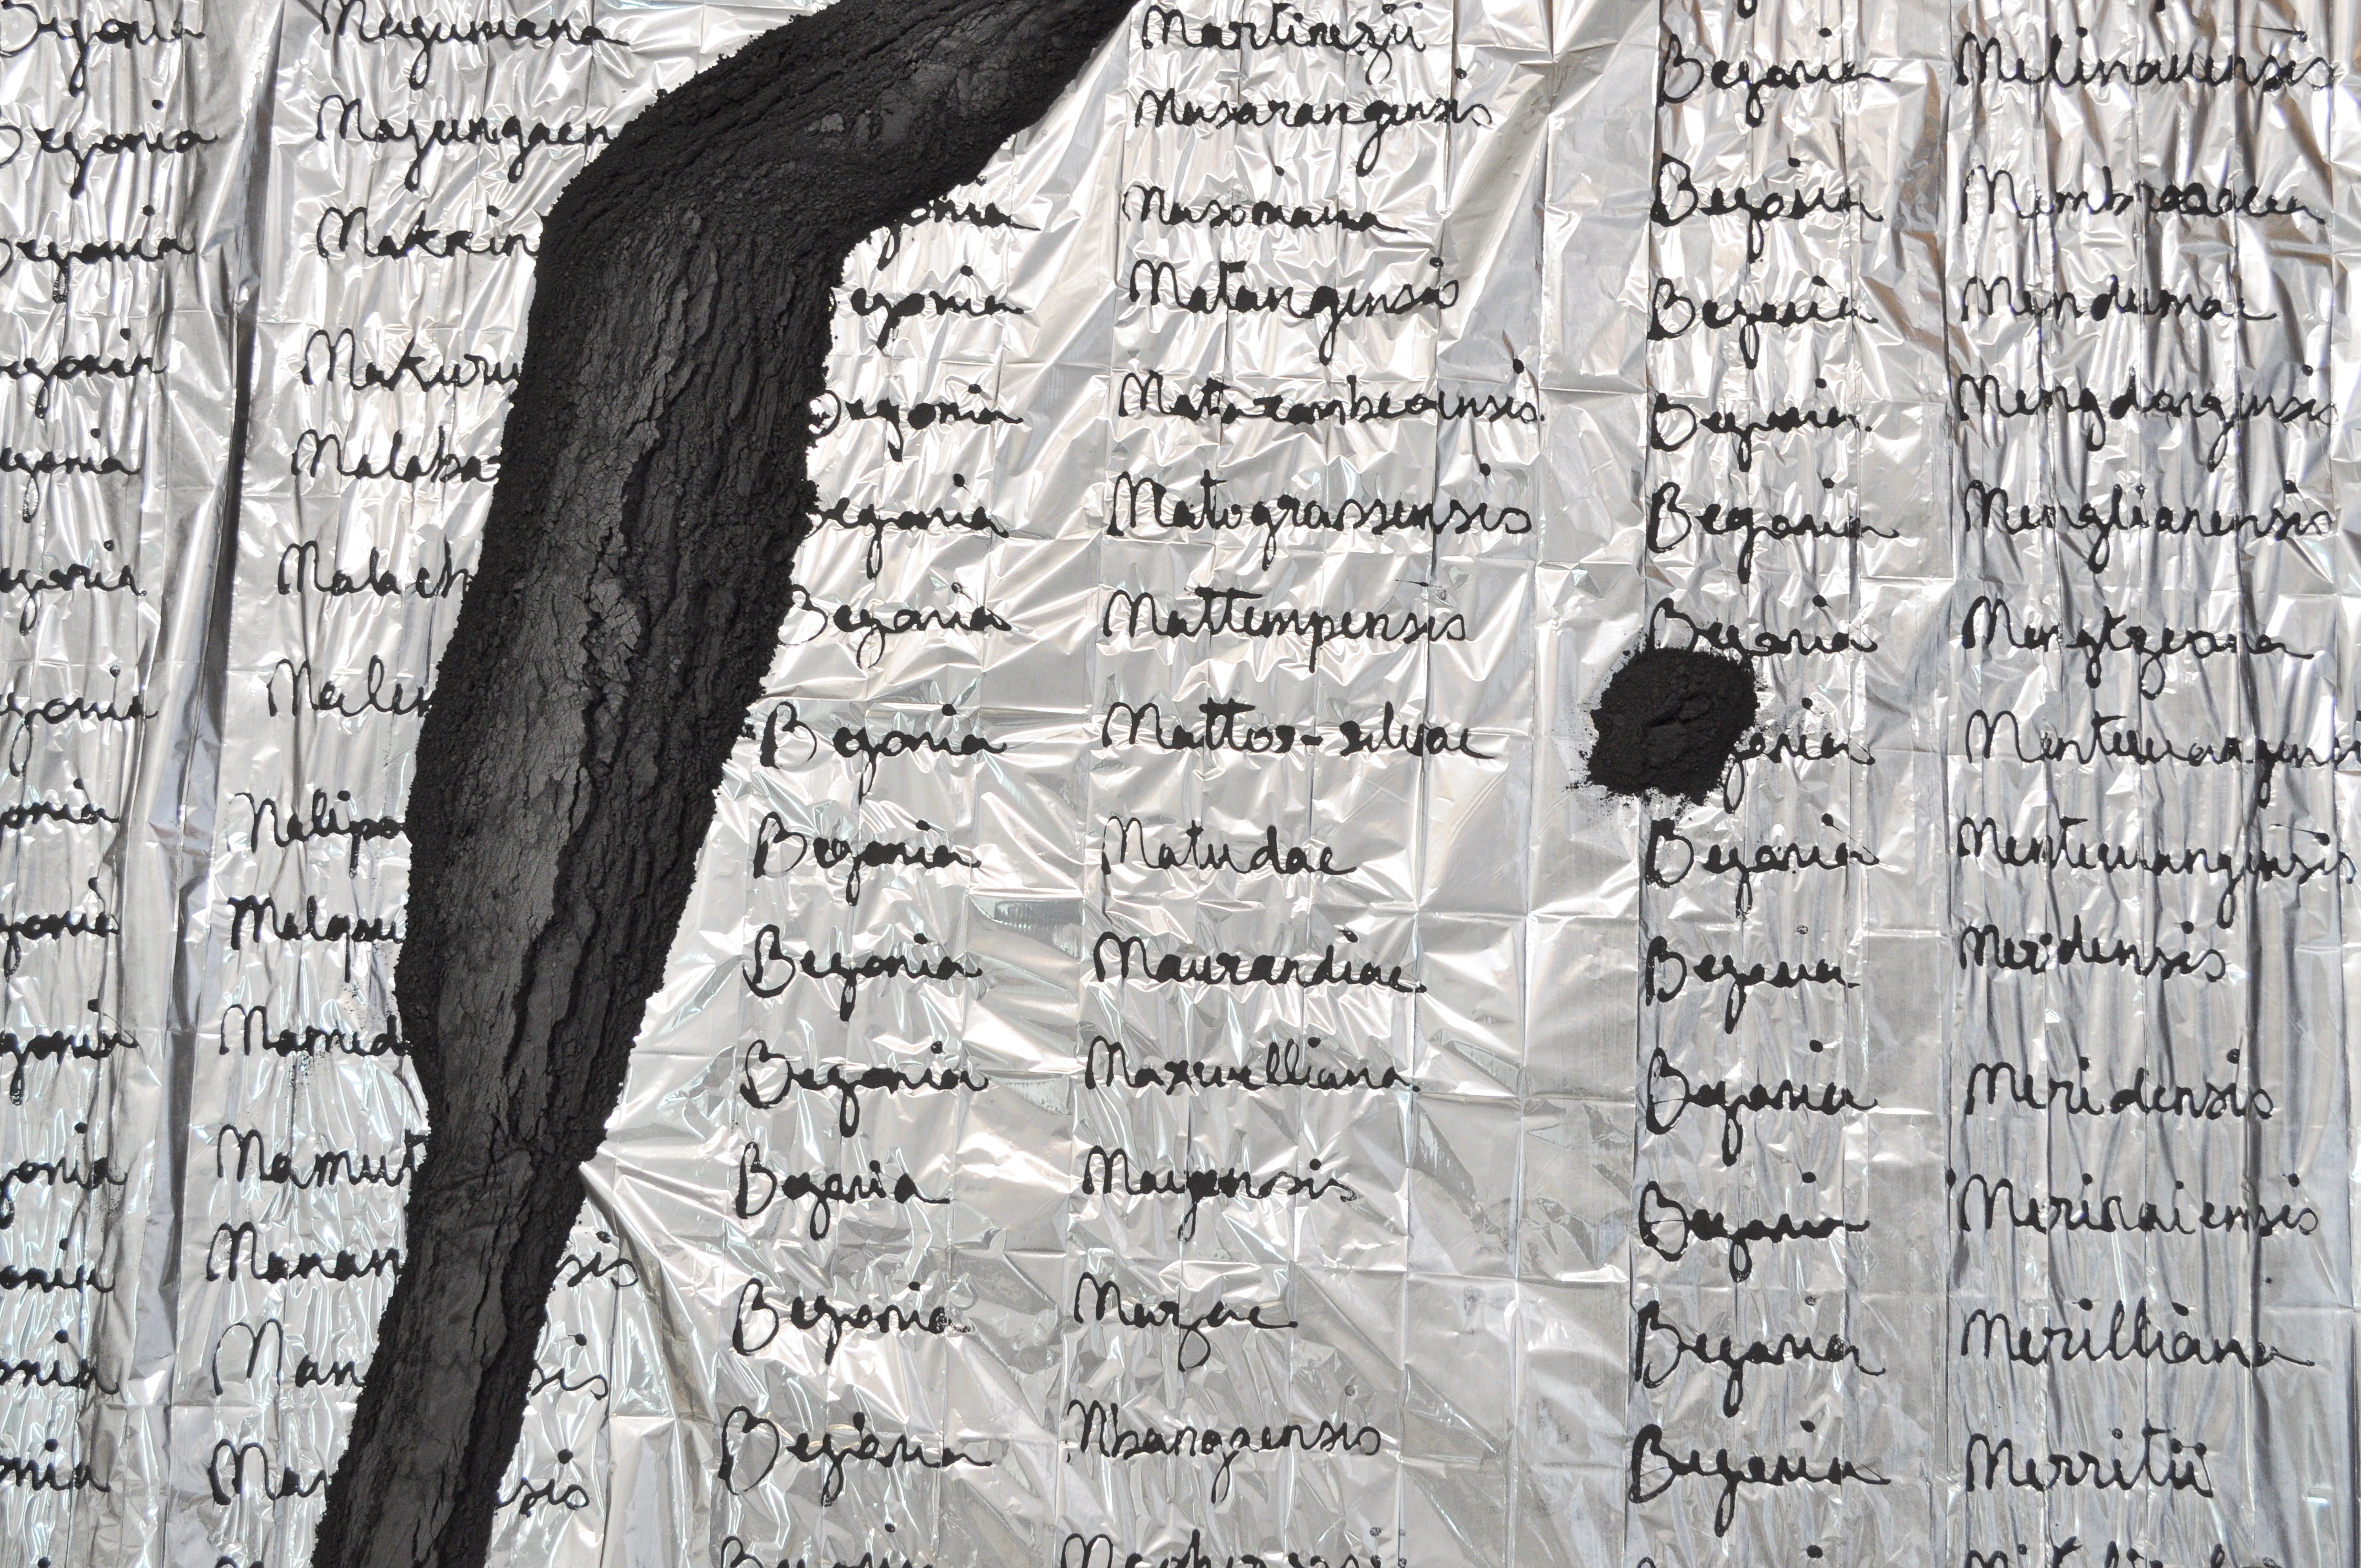 Begonia Maguniana
Begonia Majungaen
Begonia Makrin
egonia Makuru
egonia Malaba
egonia Malach
egonia
onia Malipo
gonia
gonia Mamid
gonia Mamut
onia Manan sis
onia Man sis
onia Man sis
Martinezii
Masarangensis
onia Masoniana
egonia Matangensis
Begonia
Begonia Matograssensis
Begonia Mattempensis
Begonia Mattos-silvae
Begonia Matudae
Begonia Maurandiae
Begonia Maxwelliana
Begonia Mayensis
Begonia Mazae
Begonia Mbangaensis
Begonia Melinauensis
Begonia Membracea
Begonia Mindumae
Begonia Mengdongensis
Begonia Menglianensis
Begonia Mengtzeana
gonia Mentewangensi
Begonia Mentewangensis
Begonia Meridensis
Begonia Meridensis
Begonia Merinaiensis
Begonia Merilliana
Begonia Merritii